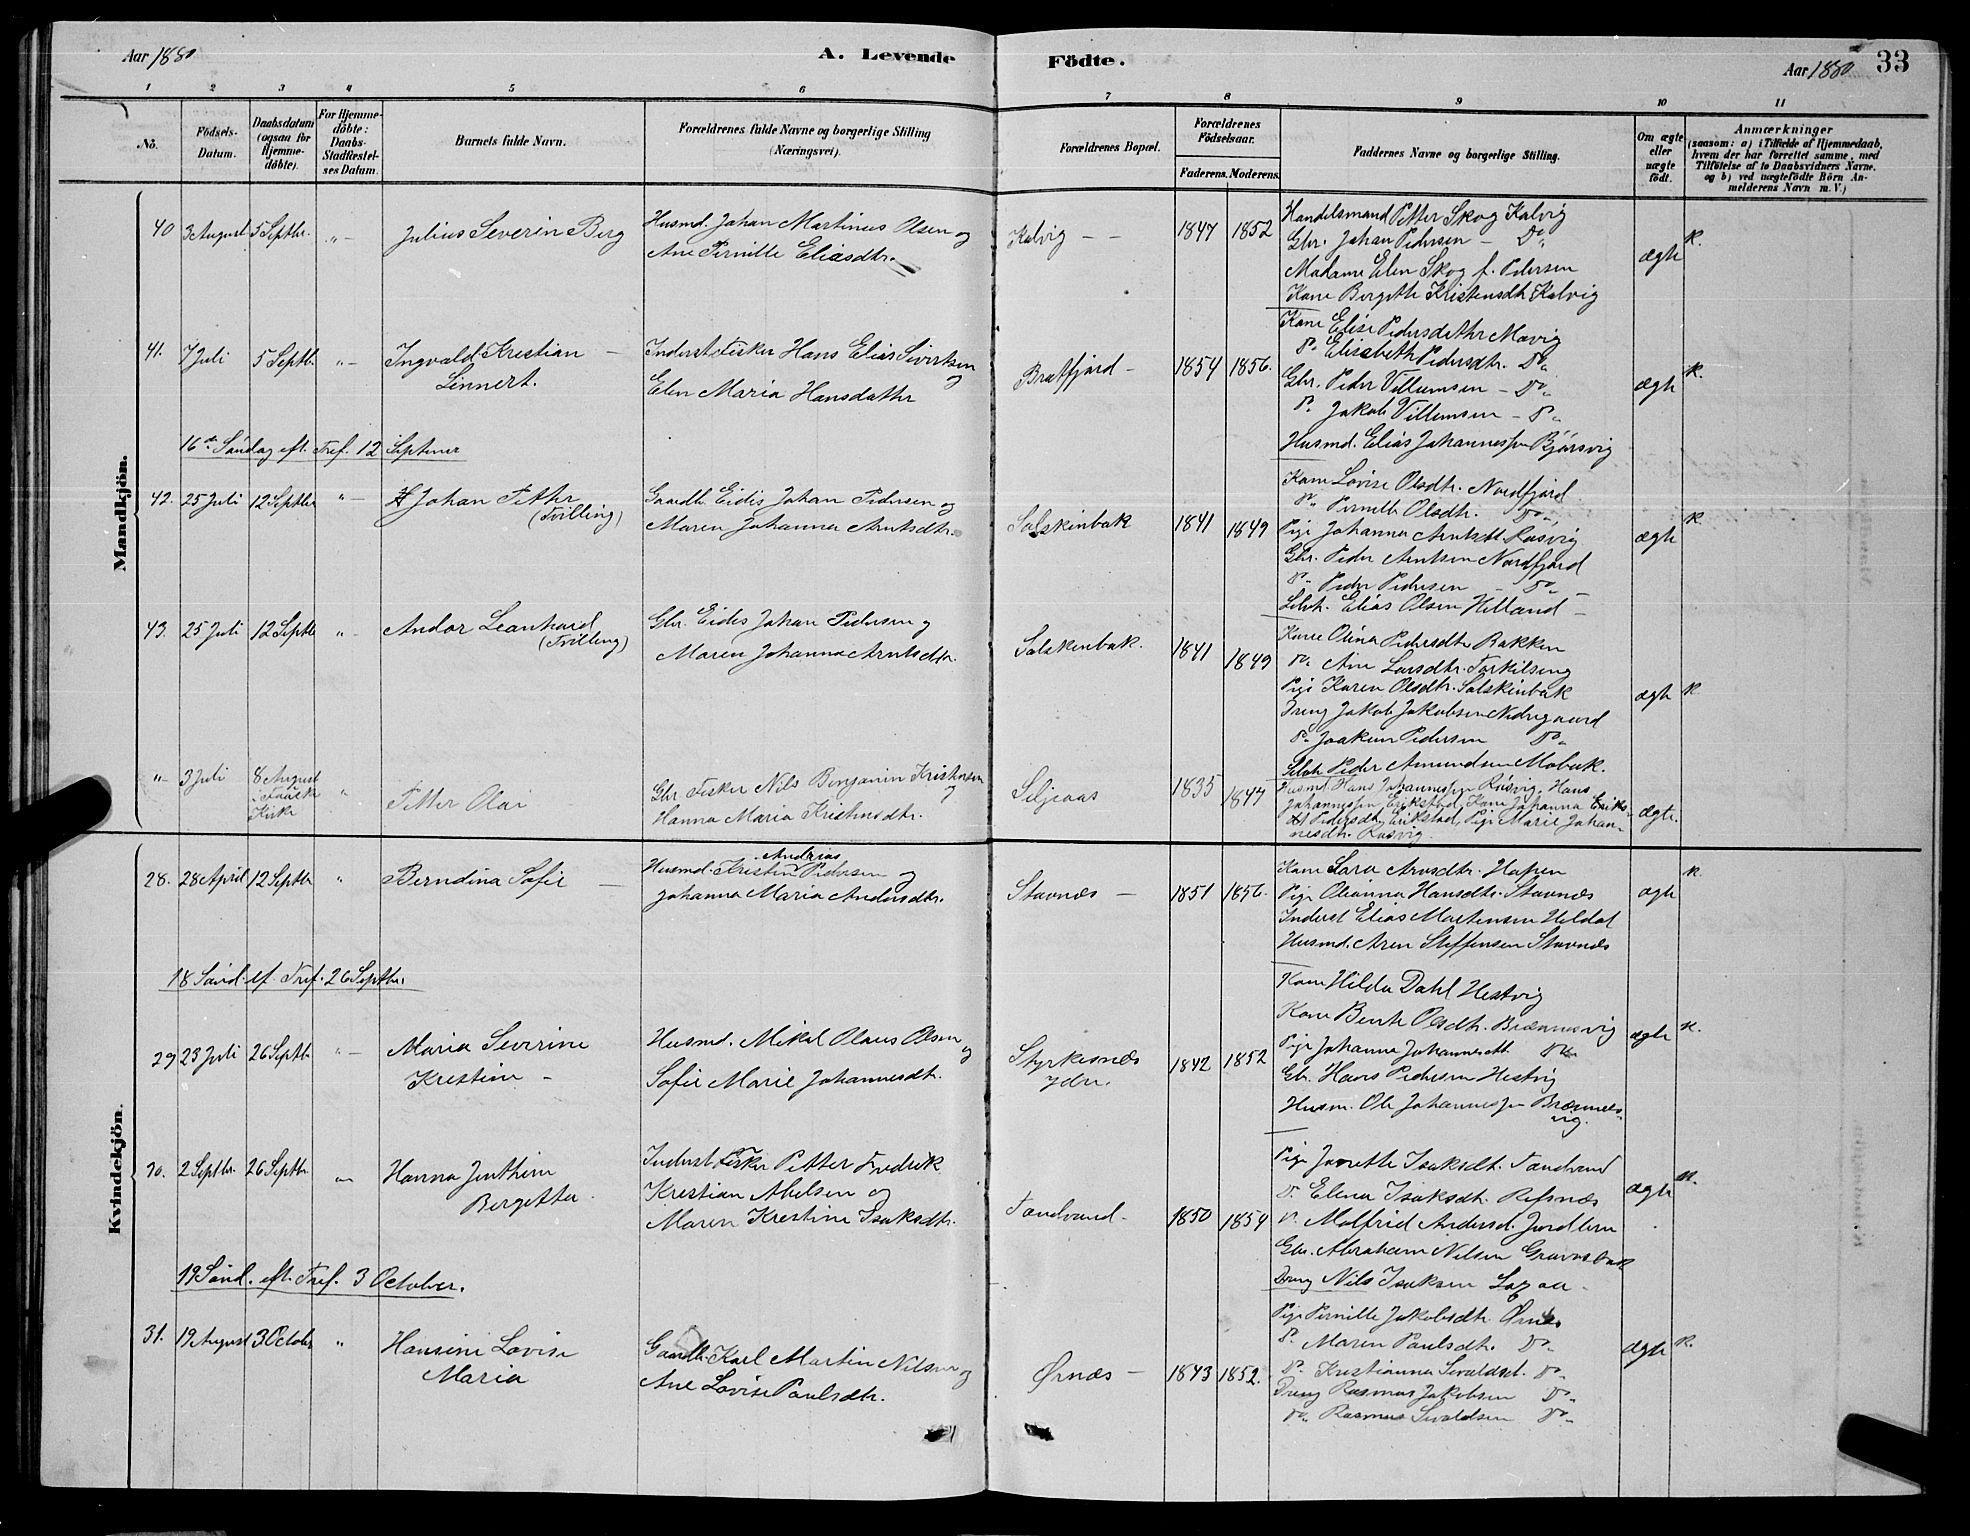 Aar 1880
A. Levende Födte.
Aar 1880
33
1 2 3 4 5 6 7 8 9 10 11
No.
Födsels-Datum.
Daabsdatum (ogsaa for Hjemmedöbte).
For Hjemmedöbte: Daabs-Stadfæstelses Datum.
Barnets fulde Navn.
Forældrenes fulde Navne og borgerlige Stilling (Næringsvei).
Forældrenes Bopæl.
Forældrenes Födselsaar.
Faderens. Moderens.
Faddernes Navne og borgerlige Stilling.
Om ægte eller uægte födt.
Anmærkninger
(saasom: a) i Tilfælde af Hjemmedaab, hvem der har forrettet samme, med Tilföielse af to Daabsvidners Navne, og b) ved uægtefödte Börn Anmelderens Navn m. V.)
Mandkjön.
40 3 August 5 Septbr. " Julius Severin Berg
Husmd. Johan Martinus Olsen og
Ane Pernille Eliasdtr.
Kalvig 1847 1852
Handelsmand Petter Skog Kalvig
Gbr. Johan Pedersen - Do
Madame Elen Skog f. Pedersen
Kone Bergethe Kristensdtr Kalvig
ægte K.
41. 7 Juli 5 Septb. " Ingvald Kristian
Linnert.
Inderst Fisker Hans Elias Sivertsen og
Elen Maria Hansdatter
Bratfjord 1854 1856.
Kone Elise Pedersdatter Mavig
Do Elisabeth Pedersdtr. Do
Gbr. Peder Villumsen - Do
Do Jakob Villumsen - Do
Husmd. Elias Johannessen Bjørsvig
ægte K.
16de Søndag eft. Tref. 12 Septemer
42. 25 Juli 12 Septbr " Johan Petter
(Tvilling)
Gaardb. Eidis Johan Pedersen og
Maren Johanna Arntsdtr.
Solskinbak 1841 1849
Kone Lovise Olsdtr. Nordfjord
Do Pernille Olsdtr. Do
Pige Johanna Arntsdt. Røsvig
Gbr. Peder Arntsen Nordfjord
Do Peder Pedersen - Do
Selvst. Elias Olsen Helland
ægte K.
43. 25 Juli 12 Septb " Andor Leonhard
(Tvilling)
Gbr. Eidis Johan Pedersen og
Maren Johanna Arntsdtr.
Solskinbak. 1841 1849
Kone Olina Pedersdtr Bakken
Do Ane Larsdtr. Torkilseng
Pige Karen Olsdtr. Solskinbak
Dreng Jakob Jakobsen Nedregaard
Do Joakim Pedersen Do
Selvst Peder Amundsen Mobak.
ægte K.
" 3 Juli 8 August
i Fauske
Kirke
" Petter Olai
Gbr Fisker Nils Benjamin Kristensen og
Hanna Maria Kristensdtr.
Seljeaas 1835 1847
Husmd. Hans Johannessen Røsvig, Hans
Johannessen Erikstad, Kone Johanna Eriks-
Pedersdtr Erikstad, Pige Marie Johan-
nesdtr. Røsvig.
ægte.
Kvindekjön.
28. 28 April 12 Septbr " Berndina Sofie
Andrias
Husmd. Kristen Pedersen og
Johanna Maria Andersdtr.
Stavnæs 1851 1856.
Kone Sara Arnsdtr. Hafsen
Pige Oleanna Hansdtr. Stavnæs
Inderst Elias Mortensen Heldal
Husmd. Aren Steffensen Stavnæs
ægte K.
18 Sønd. ef. Tref. 26 Septbr.
29 23 Juli 26 Septb. " Maria Severine
Kristine
Husmd. Mikal Olaus Olsen og
Sofie Marie Johannesdtr.
Styrkesnæs
ydre. 1842 1852
Kone Hilda Dahl Hestvig
Kone Berete Olsdtr. Brænnesvig
Pige Johanna Johannesdt. Do
Gbr. Hans Pedersen Hestvig
Husm. Ole Johannessen Brænnes-
vig.
ægte K.
30. 2 Septbr. 26 Septbr " Hanna Jenthine
Bergetta
Inderst Fisker Petter Fredrik
Kristian Abelsen og
Maren Kristine Isaksdtr.
Tandvand. 1850 1854
Pige Janette Isaksdtr. Tandvand
Do Elena Isaksdtr. Refsnæs
Do Malfrid Andersd. Jordbrn
Gbr. Abraham Nilsen Gravrsbak
Dreng Nils Isaksen
ægte K.
19 Sønd. eft. Tref. 3 October.
31. 19 August 3 October " Hansine Lovise
Maria
Gaardb. Karl Martin Nilsen og
Ane Lovise Paulsdtr.
Ørnæs 1843 1852.
Pige Pernille Jakobsdtr. Ørnes
Do Maren Paulsdtr. Do
Do Kristianna Sivaldsd. Do
Dreng Rasmus Jakobsen Do
Do Rasmus Sivaldsen Do
ægte K.